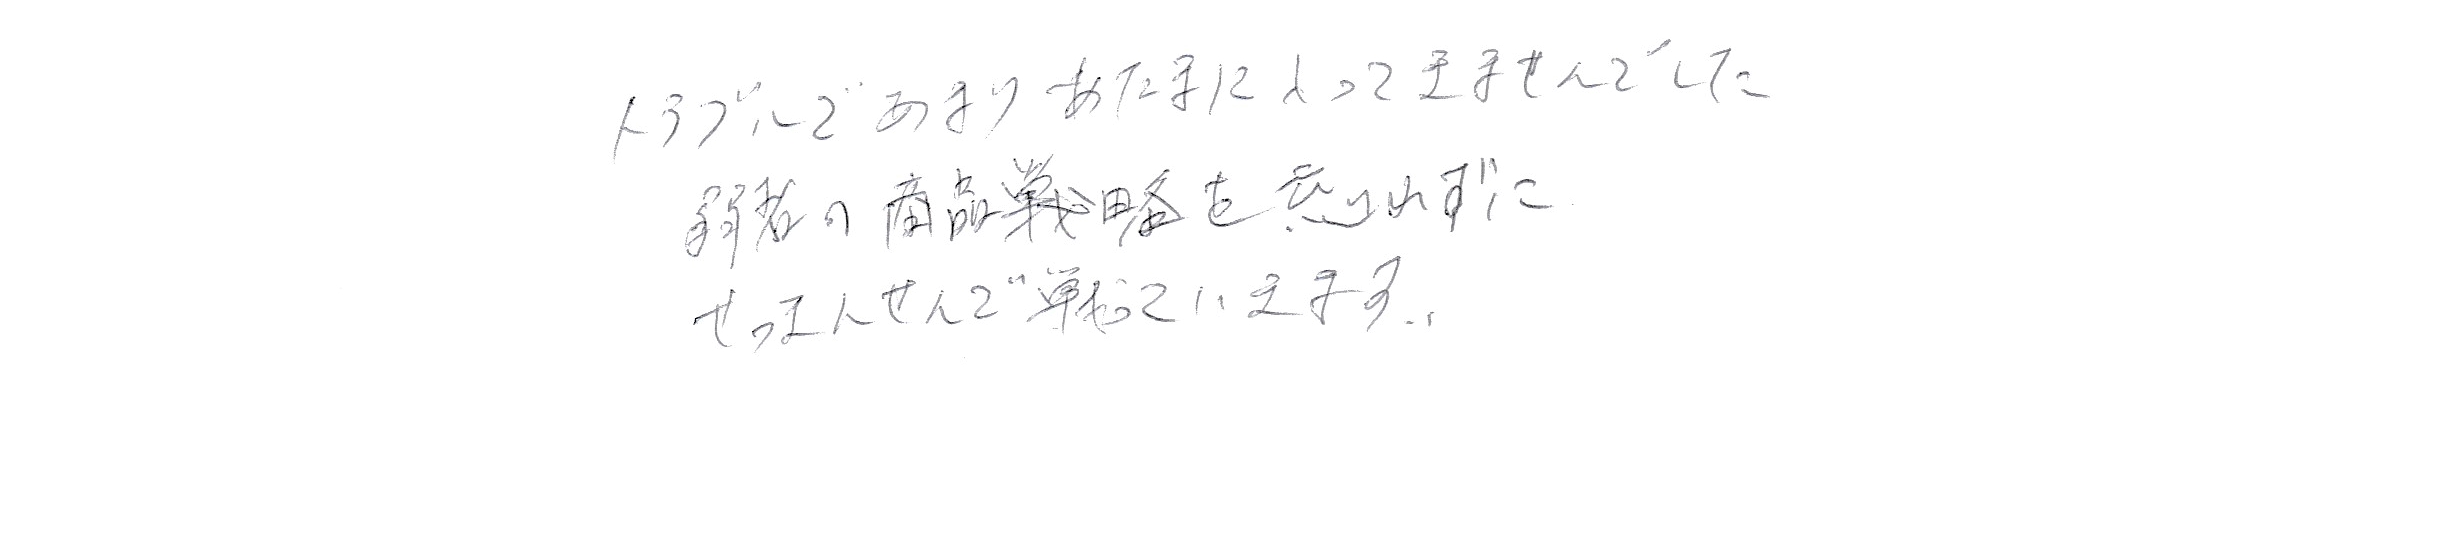 トラブルであまりあたまに入ってきませんでした
弱者の商品戦略を忘れずに
せっまんせんで戦っていきます。